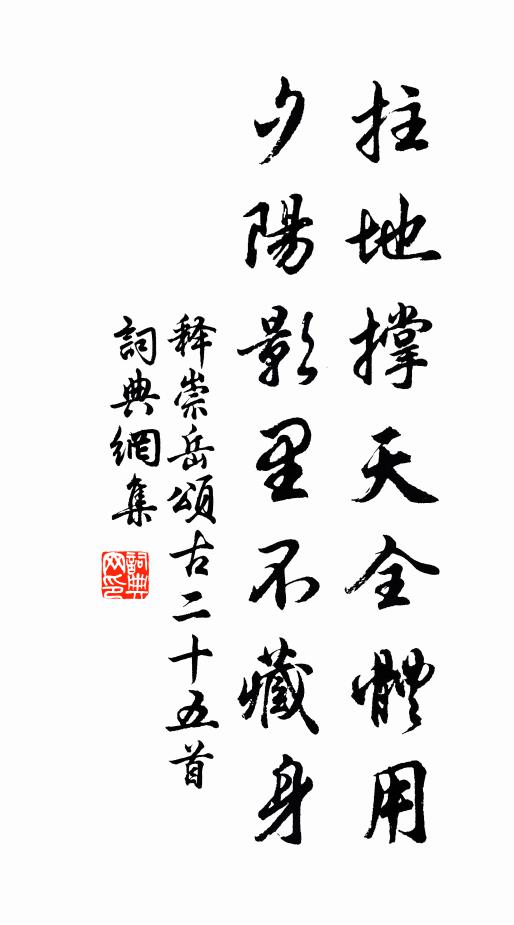 拄地撑天全體用
夕陽影里不藏身
释崇岳頌古二十五首
詞典網集
詞典网印